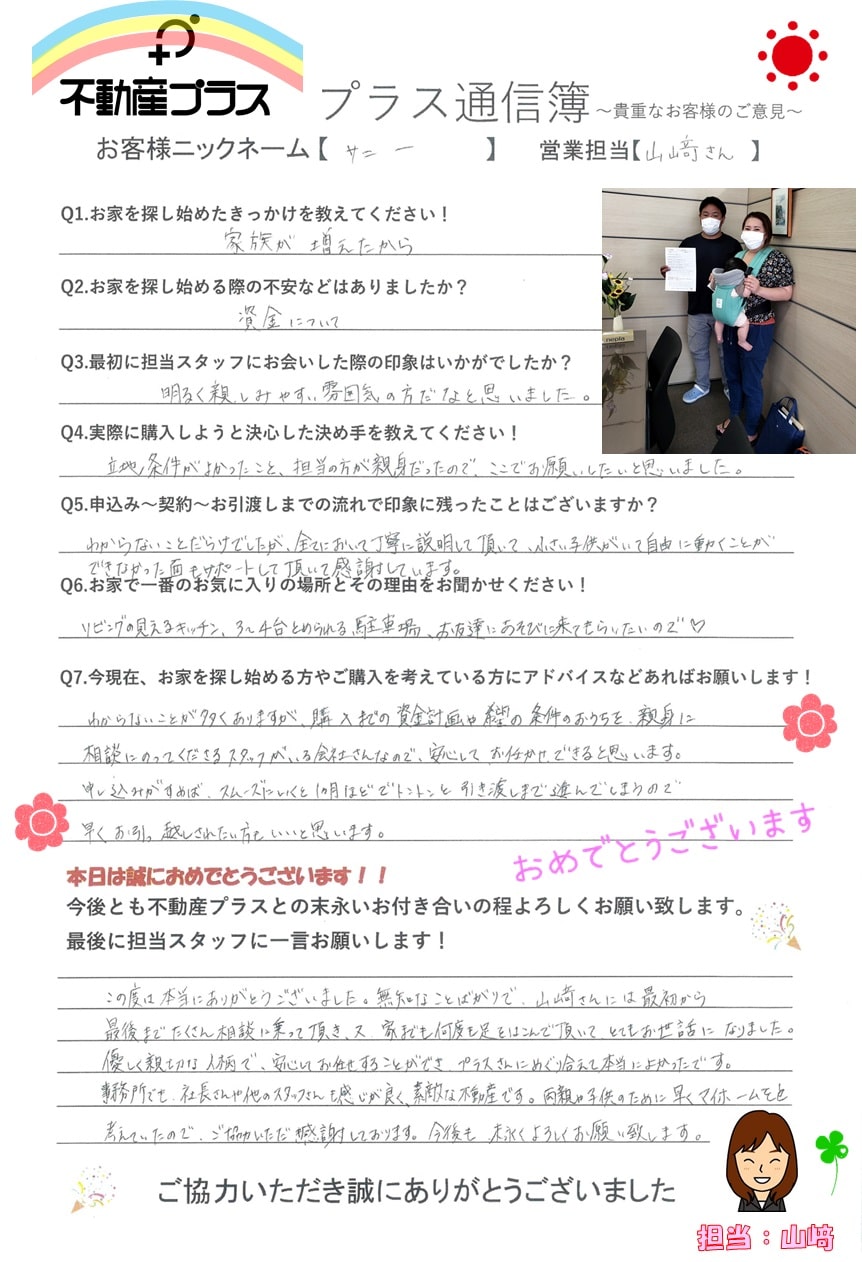 不動産プラス
プラス通信簿 ～貴重なお客様のご意見～
お客様ニックネーム【 サニー 】 営業担当【山﨑さん 】
Q1.お家を探し始めたきっかけを教えてください！
家族が増えたから
Q2.お家を探し始める際の不安などはありましたか？
資金について
Q3.最初に担当スタッフにお会いした際の印象はいかがでしたか？
明るく親しみやすい雰囲気の方だなと思いました。
Q4.実際に購入しようと決心した決め手を教えてください！
立地条件がよかったこと、担当の方が親身だったので、ここでお願いしたいと思いました。
Q5.申込み～契約～お引渡しまでの流れで印象に残ったことはございますか？
わからないことだらけでしたが、全てにおいて丁寧に説明して頂いて、小さい子供がいて自由に動くことが
できなかった面もサポートして頂いて感謝しています。
Q6.お家で一番のお気に入りの場所とその理由をお聞かせください！
リビングの見えるキッチン、3～4台とめられる駐車場、お友達にあそびに来てもらいたいので♡
Q7.今現在、お家を探し始める方やご購入を考えている方にアドバイスなどあればお願いします！
わからないことが多くありますが、購入までの資金計画や希望の条件のおうちを、親身に
相談にのってくださるスタッフがいる会社さんなので、安心してお任せできると思います。
申し込みがすめば、スムーズにいくと1ヶ月ほどでトントンと引き渡しまで進んでしまうので
早くお引っ越しされたい方もいいと思います。
おめでとうございます
本日は誠におめでとうございます！！
今後とも不動産プラスとの末永いお付き合いの程よろしくお願い致します。
最後に担当スタッフに一言お願いします！
この度は本当にありがとうございました。無知なことばかりで、山﨑さんには最初から
最後までたくさん相談に乗って頂き、又 家までも何度も足をはこんで頂いて、とてもお世話になりました。
優しく親切な人柄で、安心してお任せすることができ、プラスさんにめぐり合えて本当によかったです。
事務所でも、社長さんや他のスタッフさんも感じが良く、素敵な不動産です。両親や子供のために早くマイホームをと
考えていたので、ご協力いただき感謝しております。今後も 末永くよろしくお願い致します。
ご協力いただき誠にありがとうございました
担当：山﨑